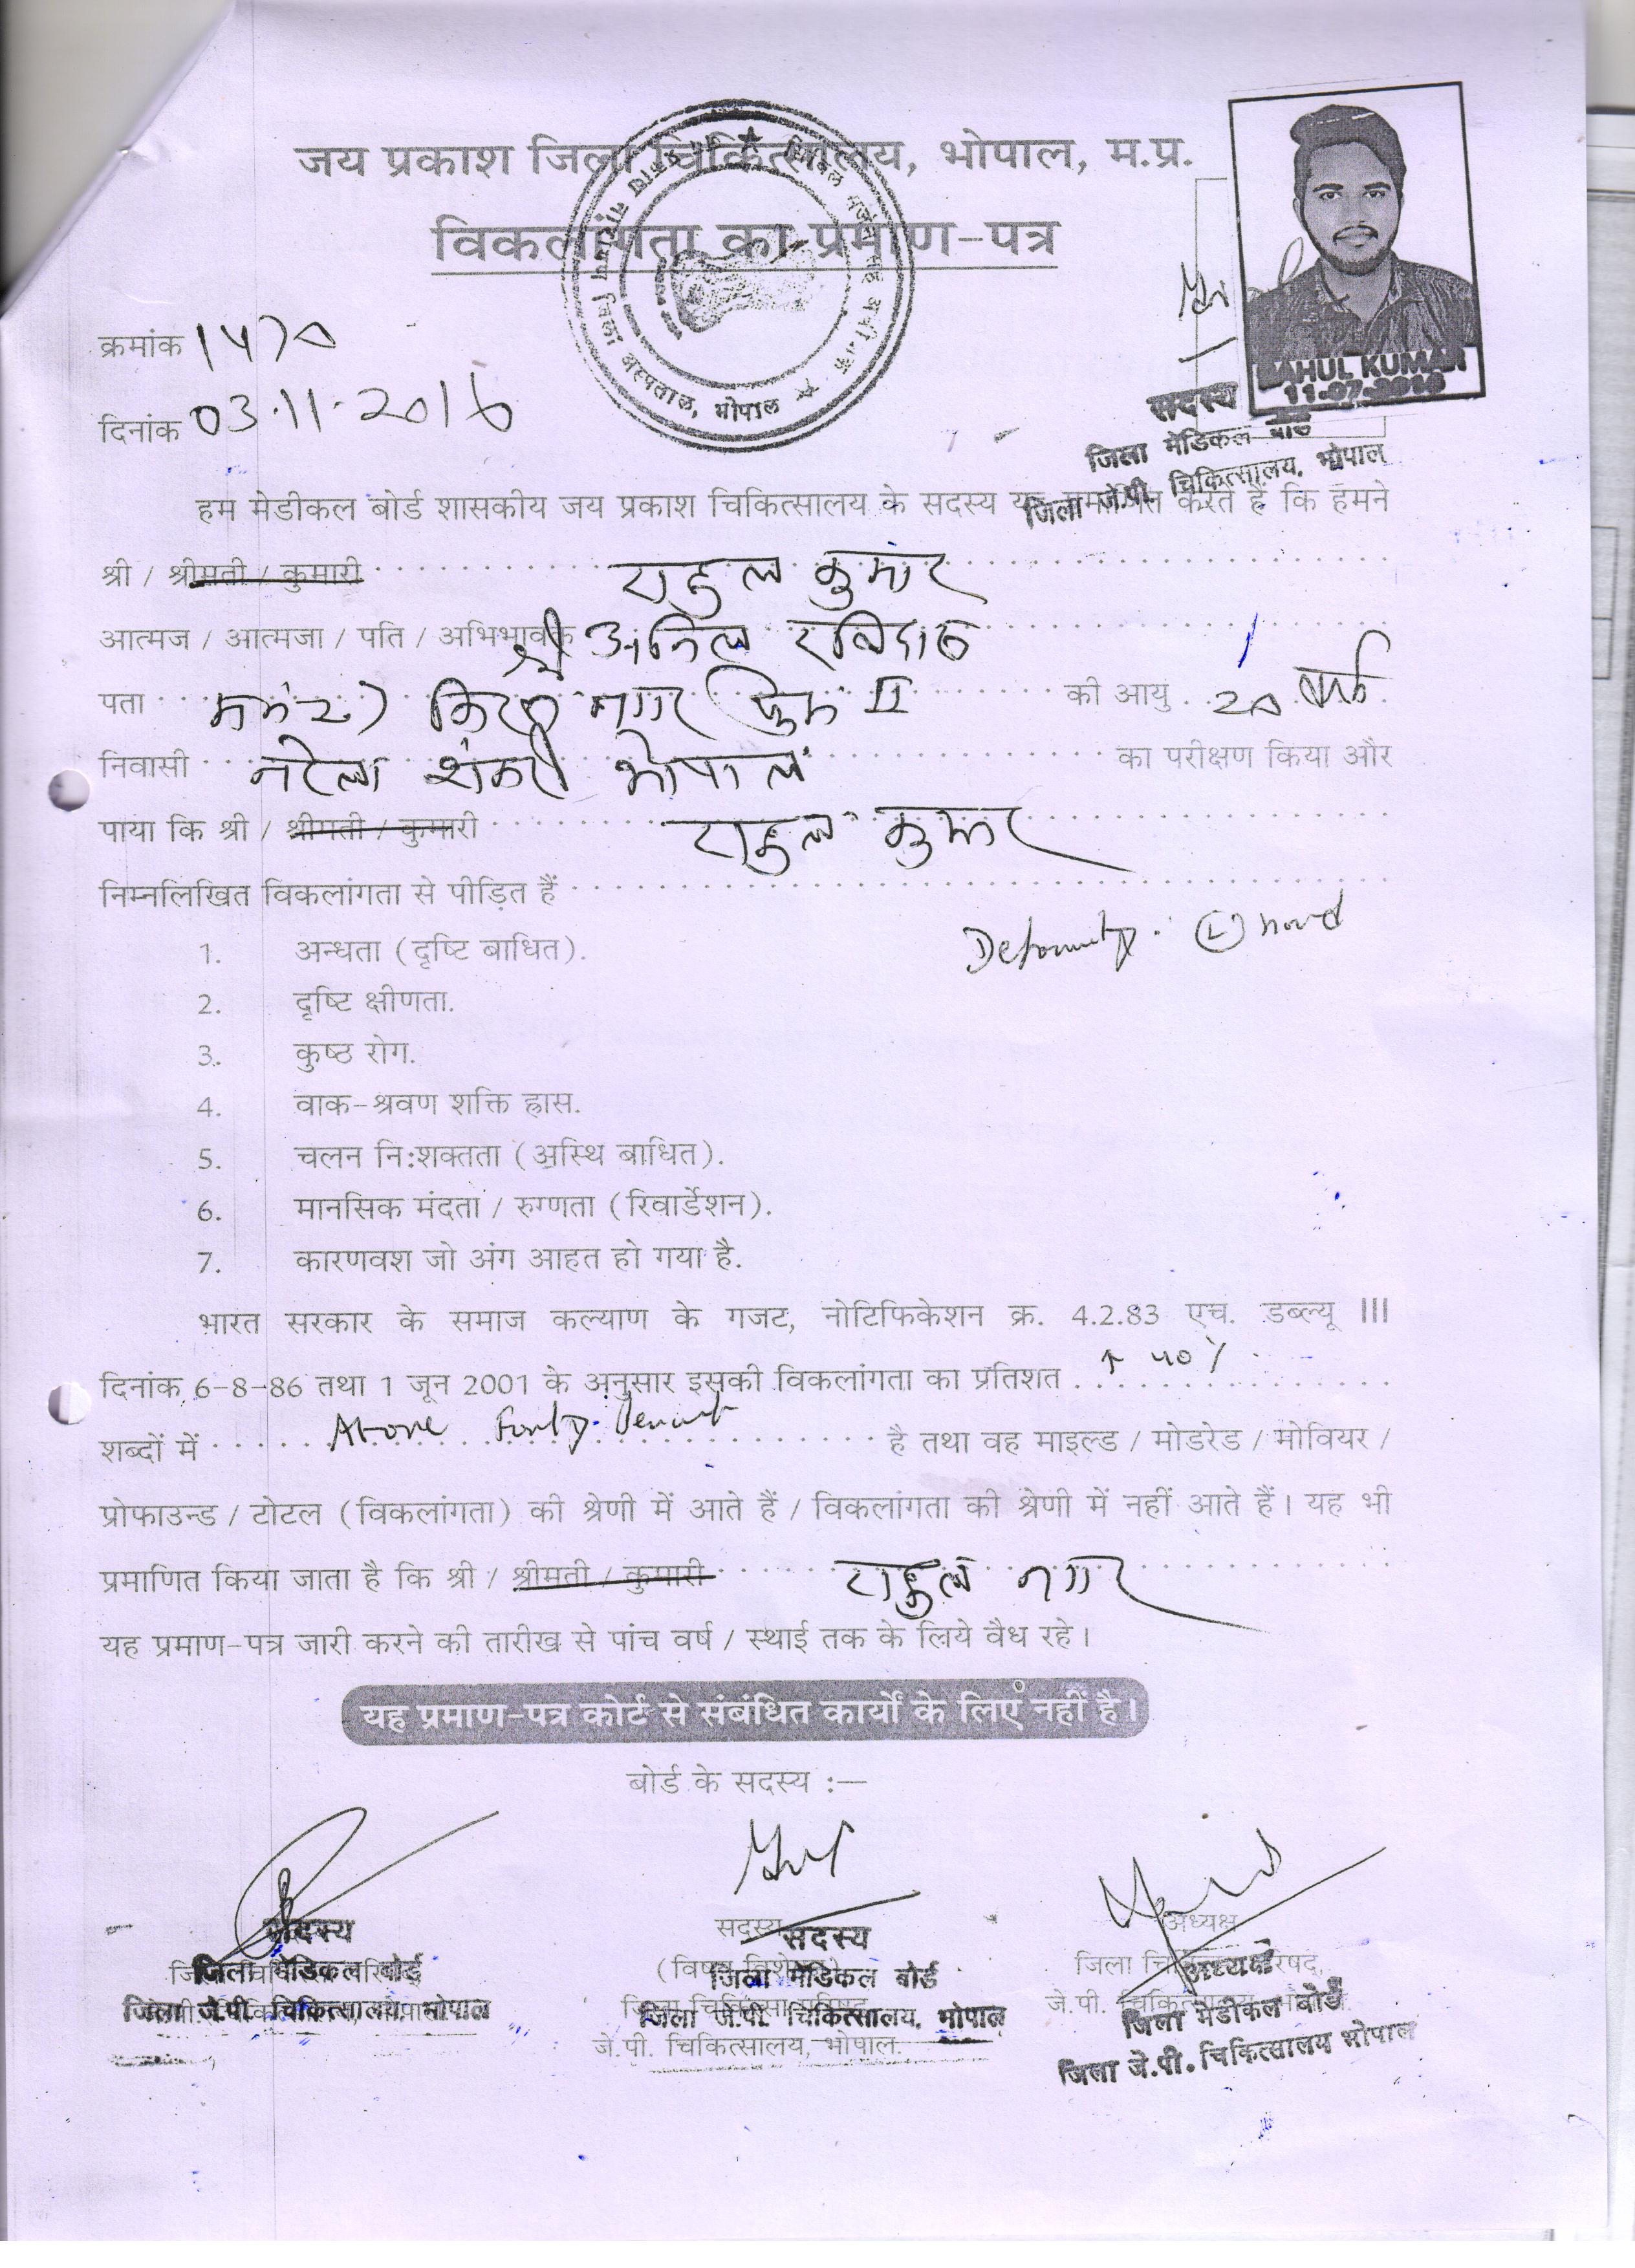 जय प्रकाश जिला चिकित्सालय, भोपाल, म.प्र.
विकलांगता का प्रमाण-पत्र
RAHUL KUMAR
11-07-2016
क्रमांक 1470
दिनांक 03.11.2016
सदस्य
जिला मेडिकल बोर्ड
जिला जे.पी. चिकित्सालय, भोपाल
हम मेडीकल बोर्ड शासकीय जय प्रकाश चिकित्सालय के सदस्य यह प्रमाणित करते हैं कि हमने
श्री / श्रीमती / कुमारी राहुल कुमार
आत्मज / आत्मजा / पति / अभिभावक श्री अनिल रविदास
पता किरण नगर II की आयु 20 वर्ष
निवासी नरेला शंकरी भोपाल का परीक्षण किया और
पाया कि श्री / श्रीमती / कुमारी राहुल कुमार
निम्नलिखित विकलांगता से पीड़ित हैं
Deformity (L) hand
1. अन्धता (दृष्टि बाधित).
2. दृष्टि क्षीणता.
3. कुष्ठ रोग.
4. वाक-श्रवण शक्ति ह्रास.
5. चलन नि:शक्तता (अस्थि बाधित).
6. मानसिक मंदता / रुग्णता (रिवार्डेशन).
7. कारणवश जो अंग आहत हो गया है.
भारत सरकार के समाज कल्याण के गजट, नोटिफिकेशन क्र. 4.2.83 एच. डब्ल्यू III
दिनांक 6-8-86 तथा 1 जून 2001 के अनुसार इसकी विकलांगता का प्रतिशत ↑ 40%
शब्दों में Above Forty Percent है तथा वह माइल्ड / मोडरेड / मोवियर /
प्रोफाउन्ड / टोटल (विकलांगता) की श्रेणी में आते हैं / विकलांगता की श्रेणी में नहीं आते हैं। यह भी
प्रमाणित किया जाता है कि श्री / श्रीमती / कुमारी राहुल नगर
यह प्रमाण-पत्र जारी करने की तारीख से पांच वर्ष / स्थाई तक के लिये वैध रहे।
यह प्रमाण-पत्र कोर्ट से संबंधित कार्यों के लिए नहीं है।
बोर्ड के सदस्य :—
सदस्य
जिला मेडिकल बोर्ड
जिला जे.पी. चिकित्सालय, भोपाल
सदस्य
सदस्य
जिला मेडिकल बोर्ड
जिला जे.पी. चिकित्सालय, भोपाल
जे.पी. चिकित्सालय, भोपाल.
अध्यक्ष
अध्यक्ष
जिला मेडीकल बोर्ड
जिला जे.पी. चिकित्सालय भोपाल